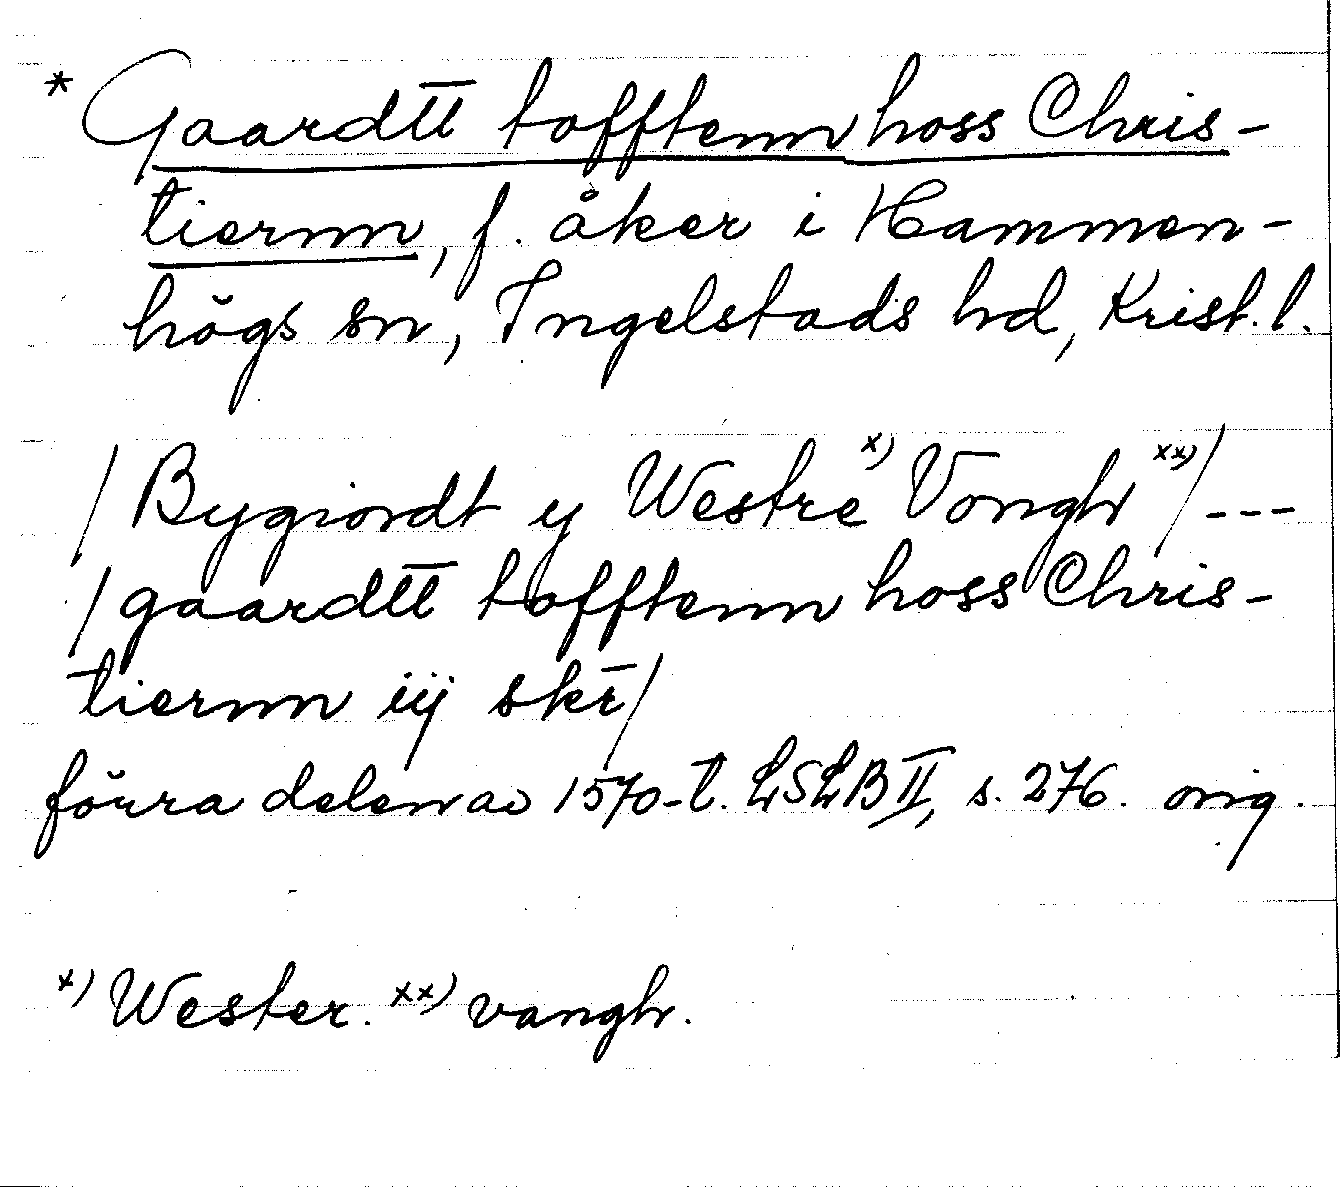 * Gaardtt tofftenn hoss Chris-
tiernn, f. åker i Hammen-
högs sn, Ingelstads hd, Krist. l.
/Bygiordt y Westre x) Vongh xx)/---
/gaardtt tofftenn hoss Chris-
tiernn iij skr/
förra delen av 1570-t. LSLB II, s. 276. orig.
x) Wester. xx) vangh.